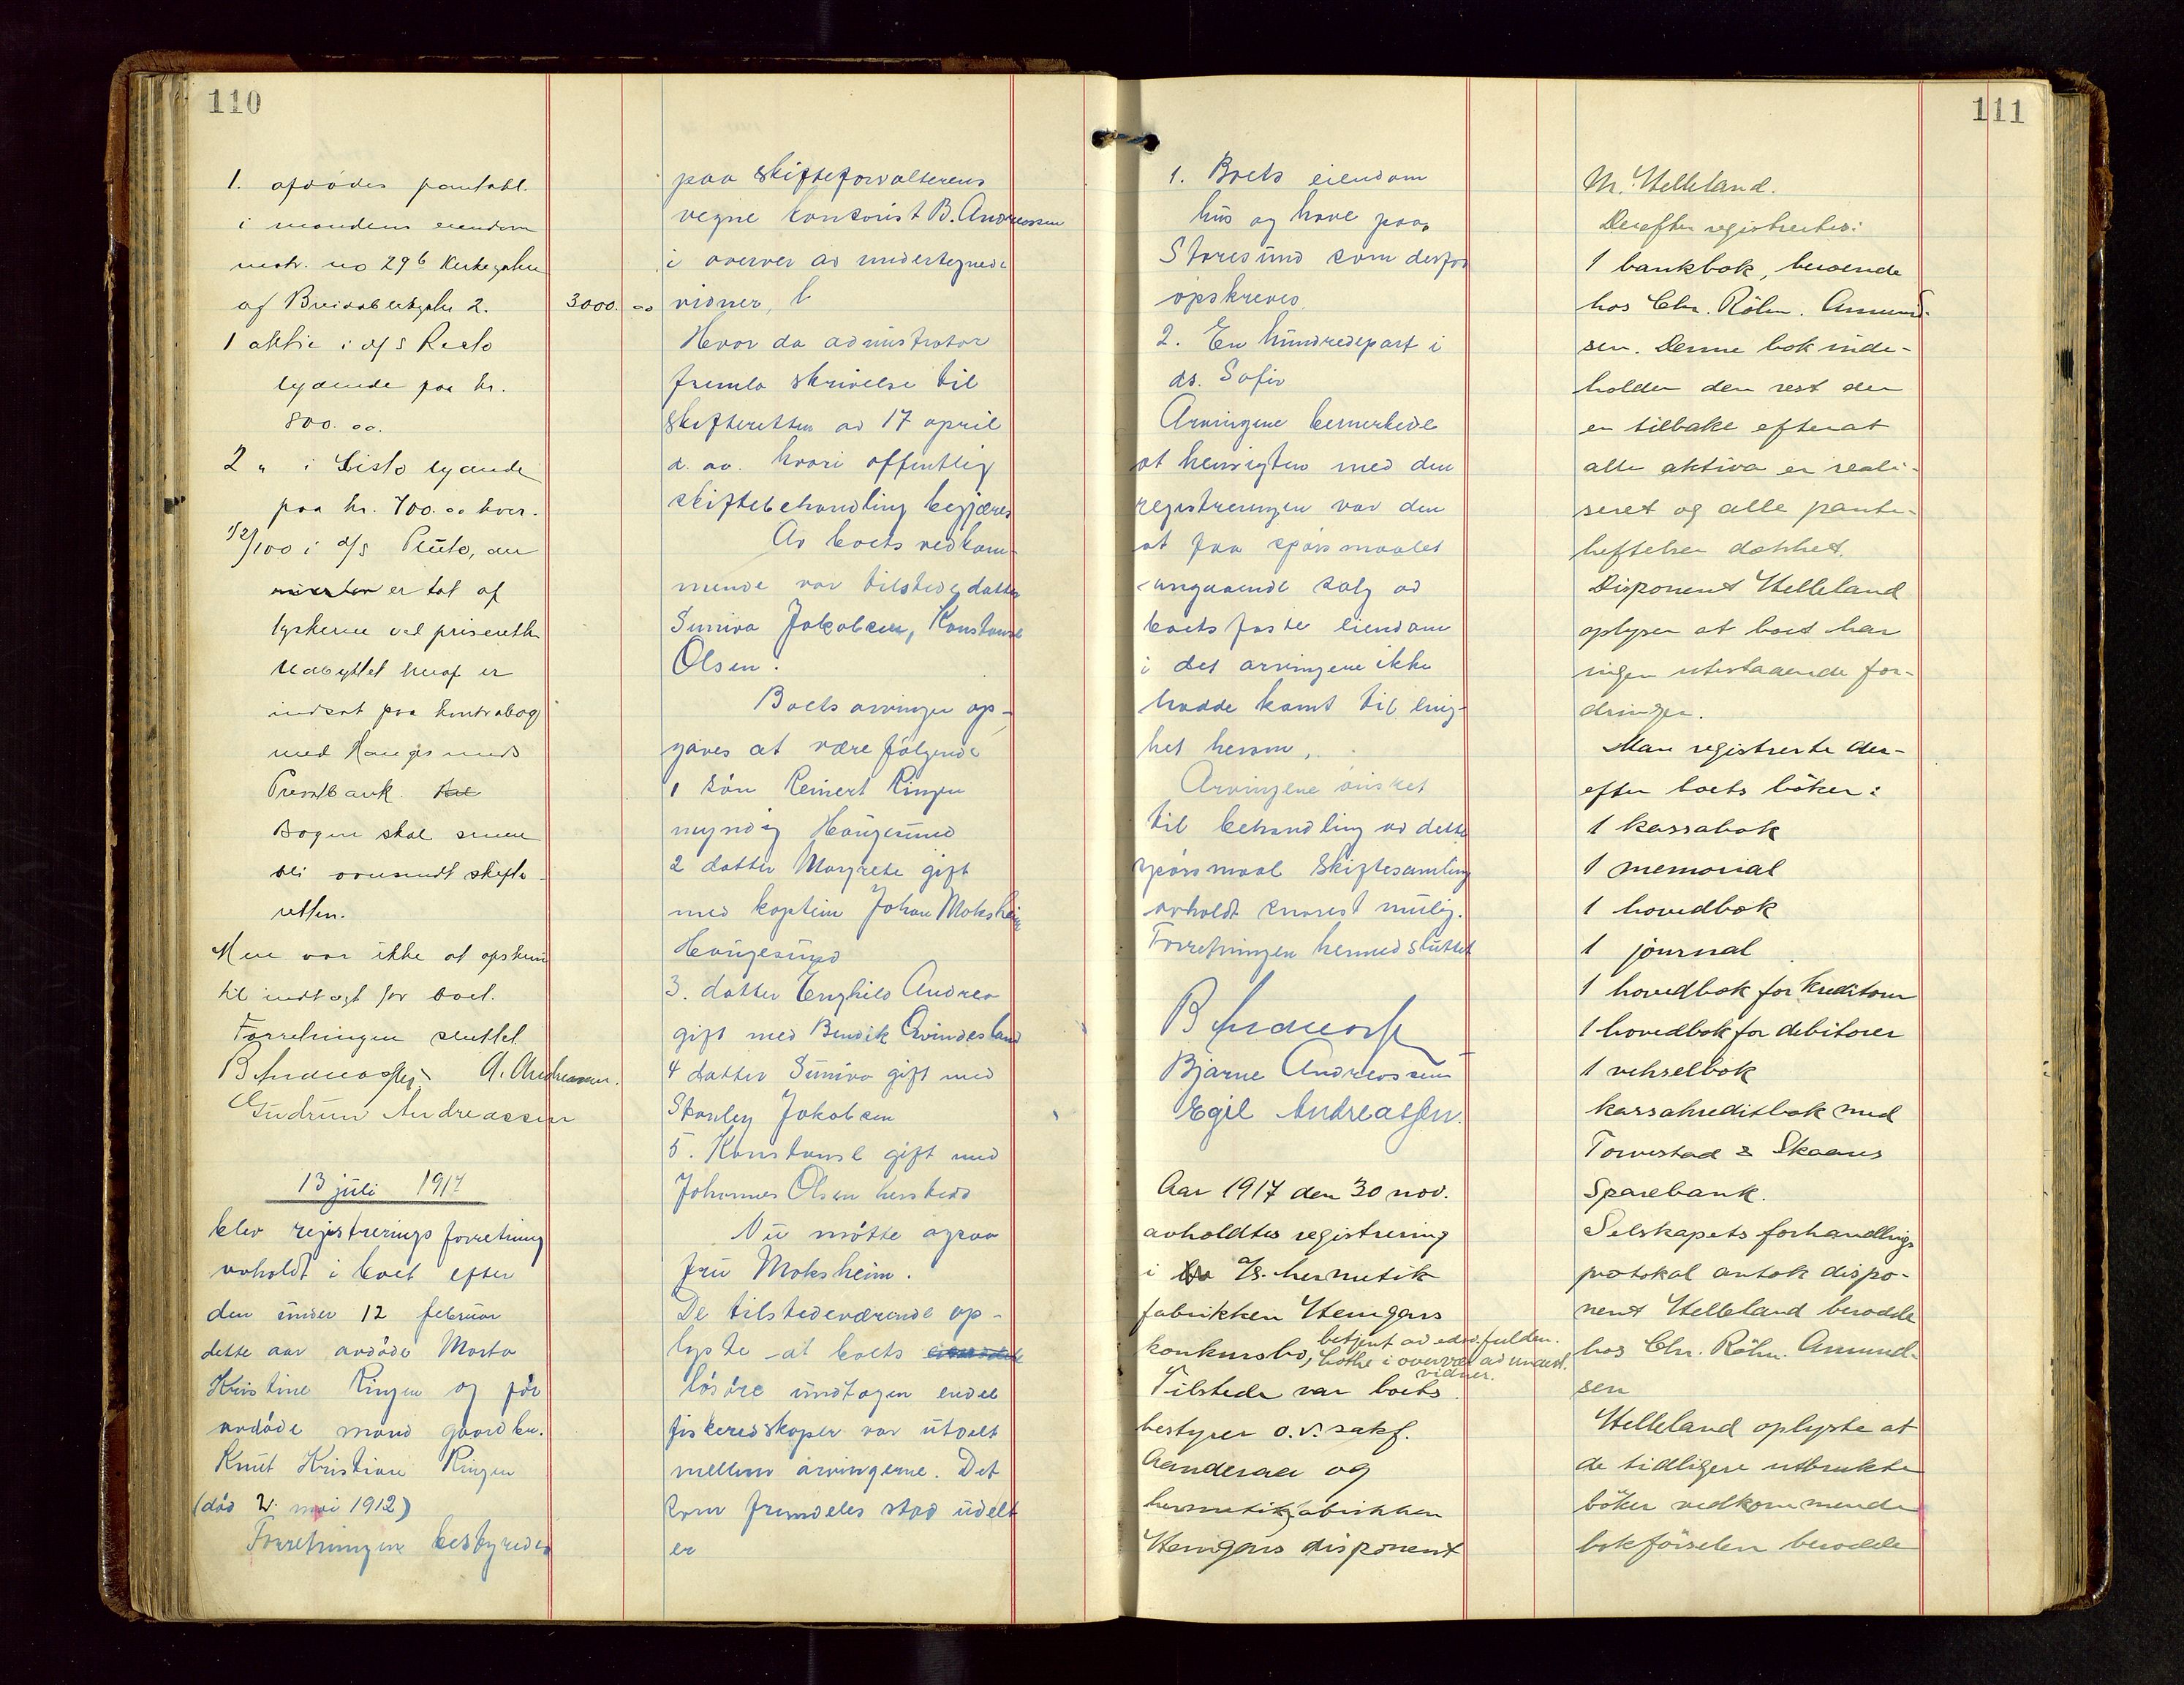 110
1. afdødes pantobl.
i mandens eiendom
matr. no 29b Kirkegaten
af Breidablikgate 2. 3000. 00
1 aktie i A/S Resto
lydende paa kr.
800. 00.
2 " i Listo lydende
paa kr. 700. 00 hver.
1/2/100 i A/S Pluto, den
er tat af
tyskerne ved priseretten
Udbyttet heraf er
indsat paa kontrabog
med Haugesunds
Privatbank.
Bogen skal senere
bli oversendt skifte-
retten.
Mere var ikke at opskrive
til indtægt for boet.
Forretningen sluttet
B Andreassen A. Andreassen.
Gudrun Andreassen
13 juli 1917
blev registreringsforretning
avholdt i boet efter
den under 12 februar
dette aar avdøde Marta
Kristine Ringen og før
avdøde mand gaardbr.
Knut Kristian Ringen
(død 2. mai 1912)
Forretningen bestyredes
paa skifteforvalterens
vegne kontorist B. Andreassen
i overvær av undertegnede
vidner,
Hvor da administrator
fremla skrivelse til
skifteretten av 17 april
d. aa. hvori offentlig
skiftebehandling begjæres
Av boets vedkom-
mende var tilstede datter
Suniva Jakobsen, Konstanse
Olsen.
Boets arvinger op-
gaves at være følgende
1 søn Reinert Ringen
myndig Haugesund
2 datter Margrete gift
med kaptein Johan Moksheim
Haugesund
3. datter Enghild Andrea
gift med Bendik Qvindesland
4 datter Suniva gift med
Stanley Jakobsen
5. Konstanse gift med
Johannes Olsen hersteds
Nu møtte ogsaa
fru Moksheim.
De tilstedeværende op-
lyste at boets
løsøre undtagen endel
fiskeredskaper var utdelt
mellem arvingerne. Det
som fremdeles stod udelt
er
111
1. Boets eiendom
hus og have paa
Storesund som derfor
opskreves.
2. En hundredepart i
ds. Safir
Arvingene bemerkede
at hensigten med den
registreringen var den
at faa spørsmaalet
angaaende salg av
boets faste eiendom
i det arvingene ikke
hadde komt til enig-
het herom.
Arvingene ønsket
til behandling av dette
spørsmaal skiftesamling
avholdt snarest mulig.
Forretningen hermed sluttet
B Andreassen
Bjarne Andreassen
Egil Andreassen.
Aar 1917 den 30 nov.
avholdtes registrering
i A/S. hermetik
fabrikken Hemgars
konkursbo, betjent av edsv. fuldm.
Bothe i overvær av undert.
vidner.
Tilstede var boets
bestyrer o.r.sakf.
Aanderaa og
hermetikfabrikken
Hemgars disponent
M. Helleland.
Derefter registrertes:
1 bankbok, beroende
hos Chr. Röhn. Amund-
sen. Denne bok inde-
holder den rest der
er tilbake efterat
alle aktiva er reali-
seret og alle pante-
heftelser dækket.
Disponent Helleland
oplyser at boet har
ingen utestaaende for-
dringer.
Man registrerte der-
efter boets bøker:
1 kassabok
1 memorial
1 hovedbok
1 journal
1 hovedbok for kreditorer
1 hovedbok for debitorer
1 vekselbok
kassakreditbok med
Torvestad & Skaares
Sparebank.
Selskapets forhandlings
protokol antok dispo-
nent Helleland berodde
hos Chr. Röhn. Amund-
sen
Helleland oplyste at
de tidligere utbrukte
bøker vedkommende
bokførselen berodde